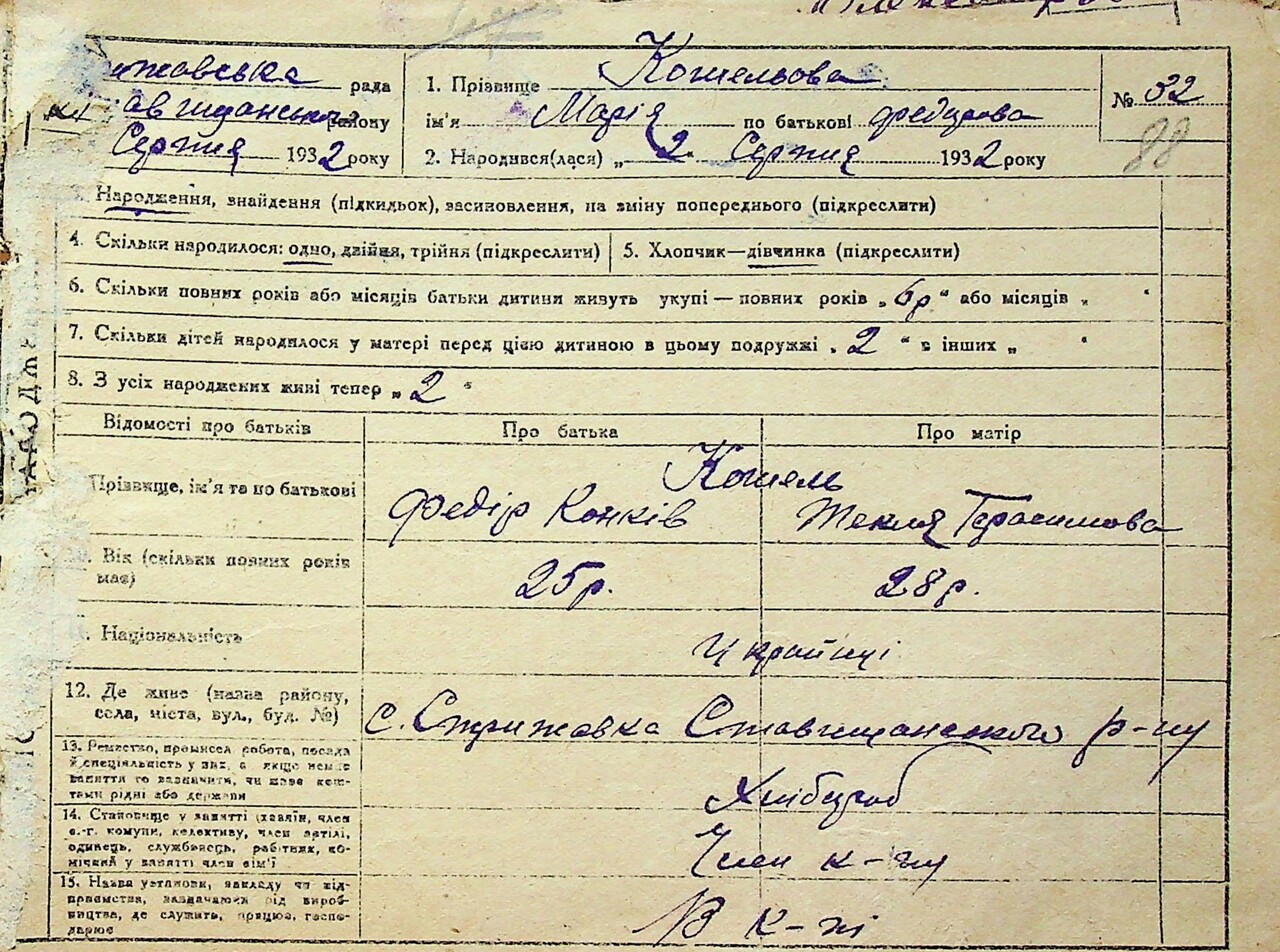 рада
району
Серпня 1932 року
1. Прізвище Кошельова
ім'я Марія по батькові
2. Народився(лася) „ 2 Серпня 1932 року
№ 32
88
Народження, знайдення (підкидьок), засиновлення, на зміну попереднього (підкреслити)
4. Скільки народилося: одно, двійня, трійня (підкреслити)
5. Хлопчик—дівчинка (підкреслити)
6. Скільки повних років або місяців батьки дитини живуть укупі — повних років „ 6р “ або місяців „ “
7. Скільки дітей народилося у матері перед цією дитиною в цьому подружжі „ 2 “ в інших „ “
8. З усіх народжених живі тепер „ 2 “
Відомості про батьків
Про батька
Про матір
Прізвище, ім'я та по батькові
Кошель
Федір Конків
Текля Герасимова
Вік (скільки повних років
має)
25р.
28р.
Національність
Українці
12. Де живе (назва району,
села, міста, вул., буд. №)
с. Стрижавка Ставищанського р-ну
13. Ремество, промисел робота, посада
й спеціяльність у них, а якщо немає
заняття то зазначити, чи живе кош-
тами рідні або держави
Хлібороб
14. Становище у занятті (хазяїн, член
с.-г. комуни, колективу, член артілі,
одинець, службовець, робітник, по-
мічний у занятті член сім'ї
Член к-пу
15. Назва установи, закладу чи під-
приємства, зазначаючи рід вироб-
ництва, де служить, працює, госпо-
дарює
В к-пі